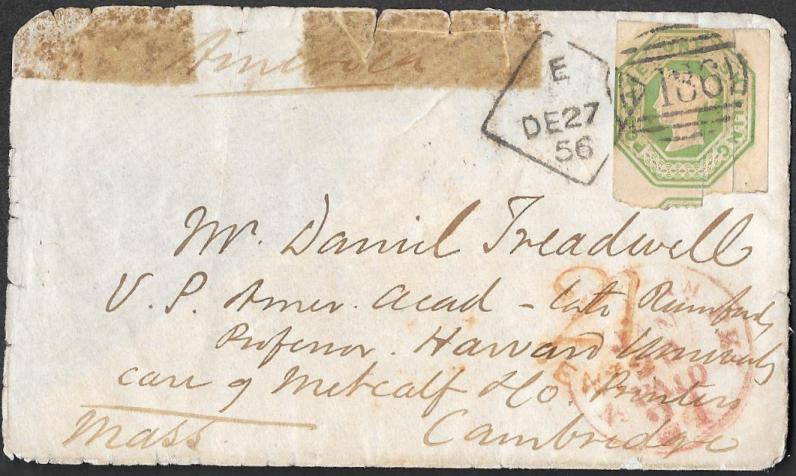 America
E
DE27
56
ONE SHILLING
136
Mr. Daniel Treadwell
V. P. Amer. Acad - late Rumford
Professor. Harvard University
care of Metcalf & Co. Printers
Mass. Cambridge
21
PAID
21